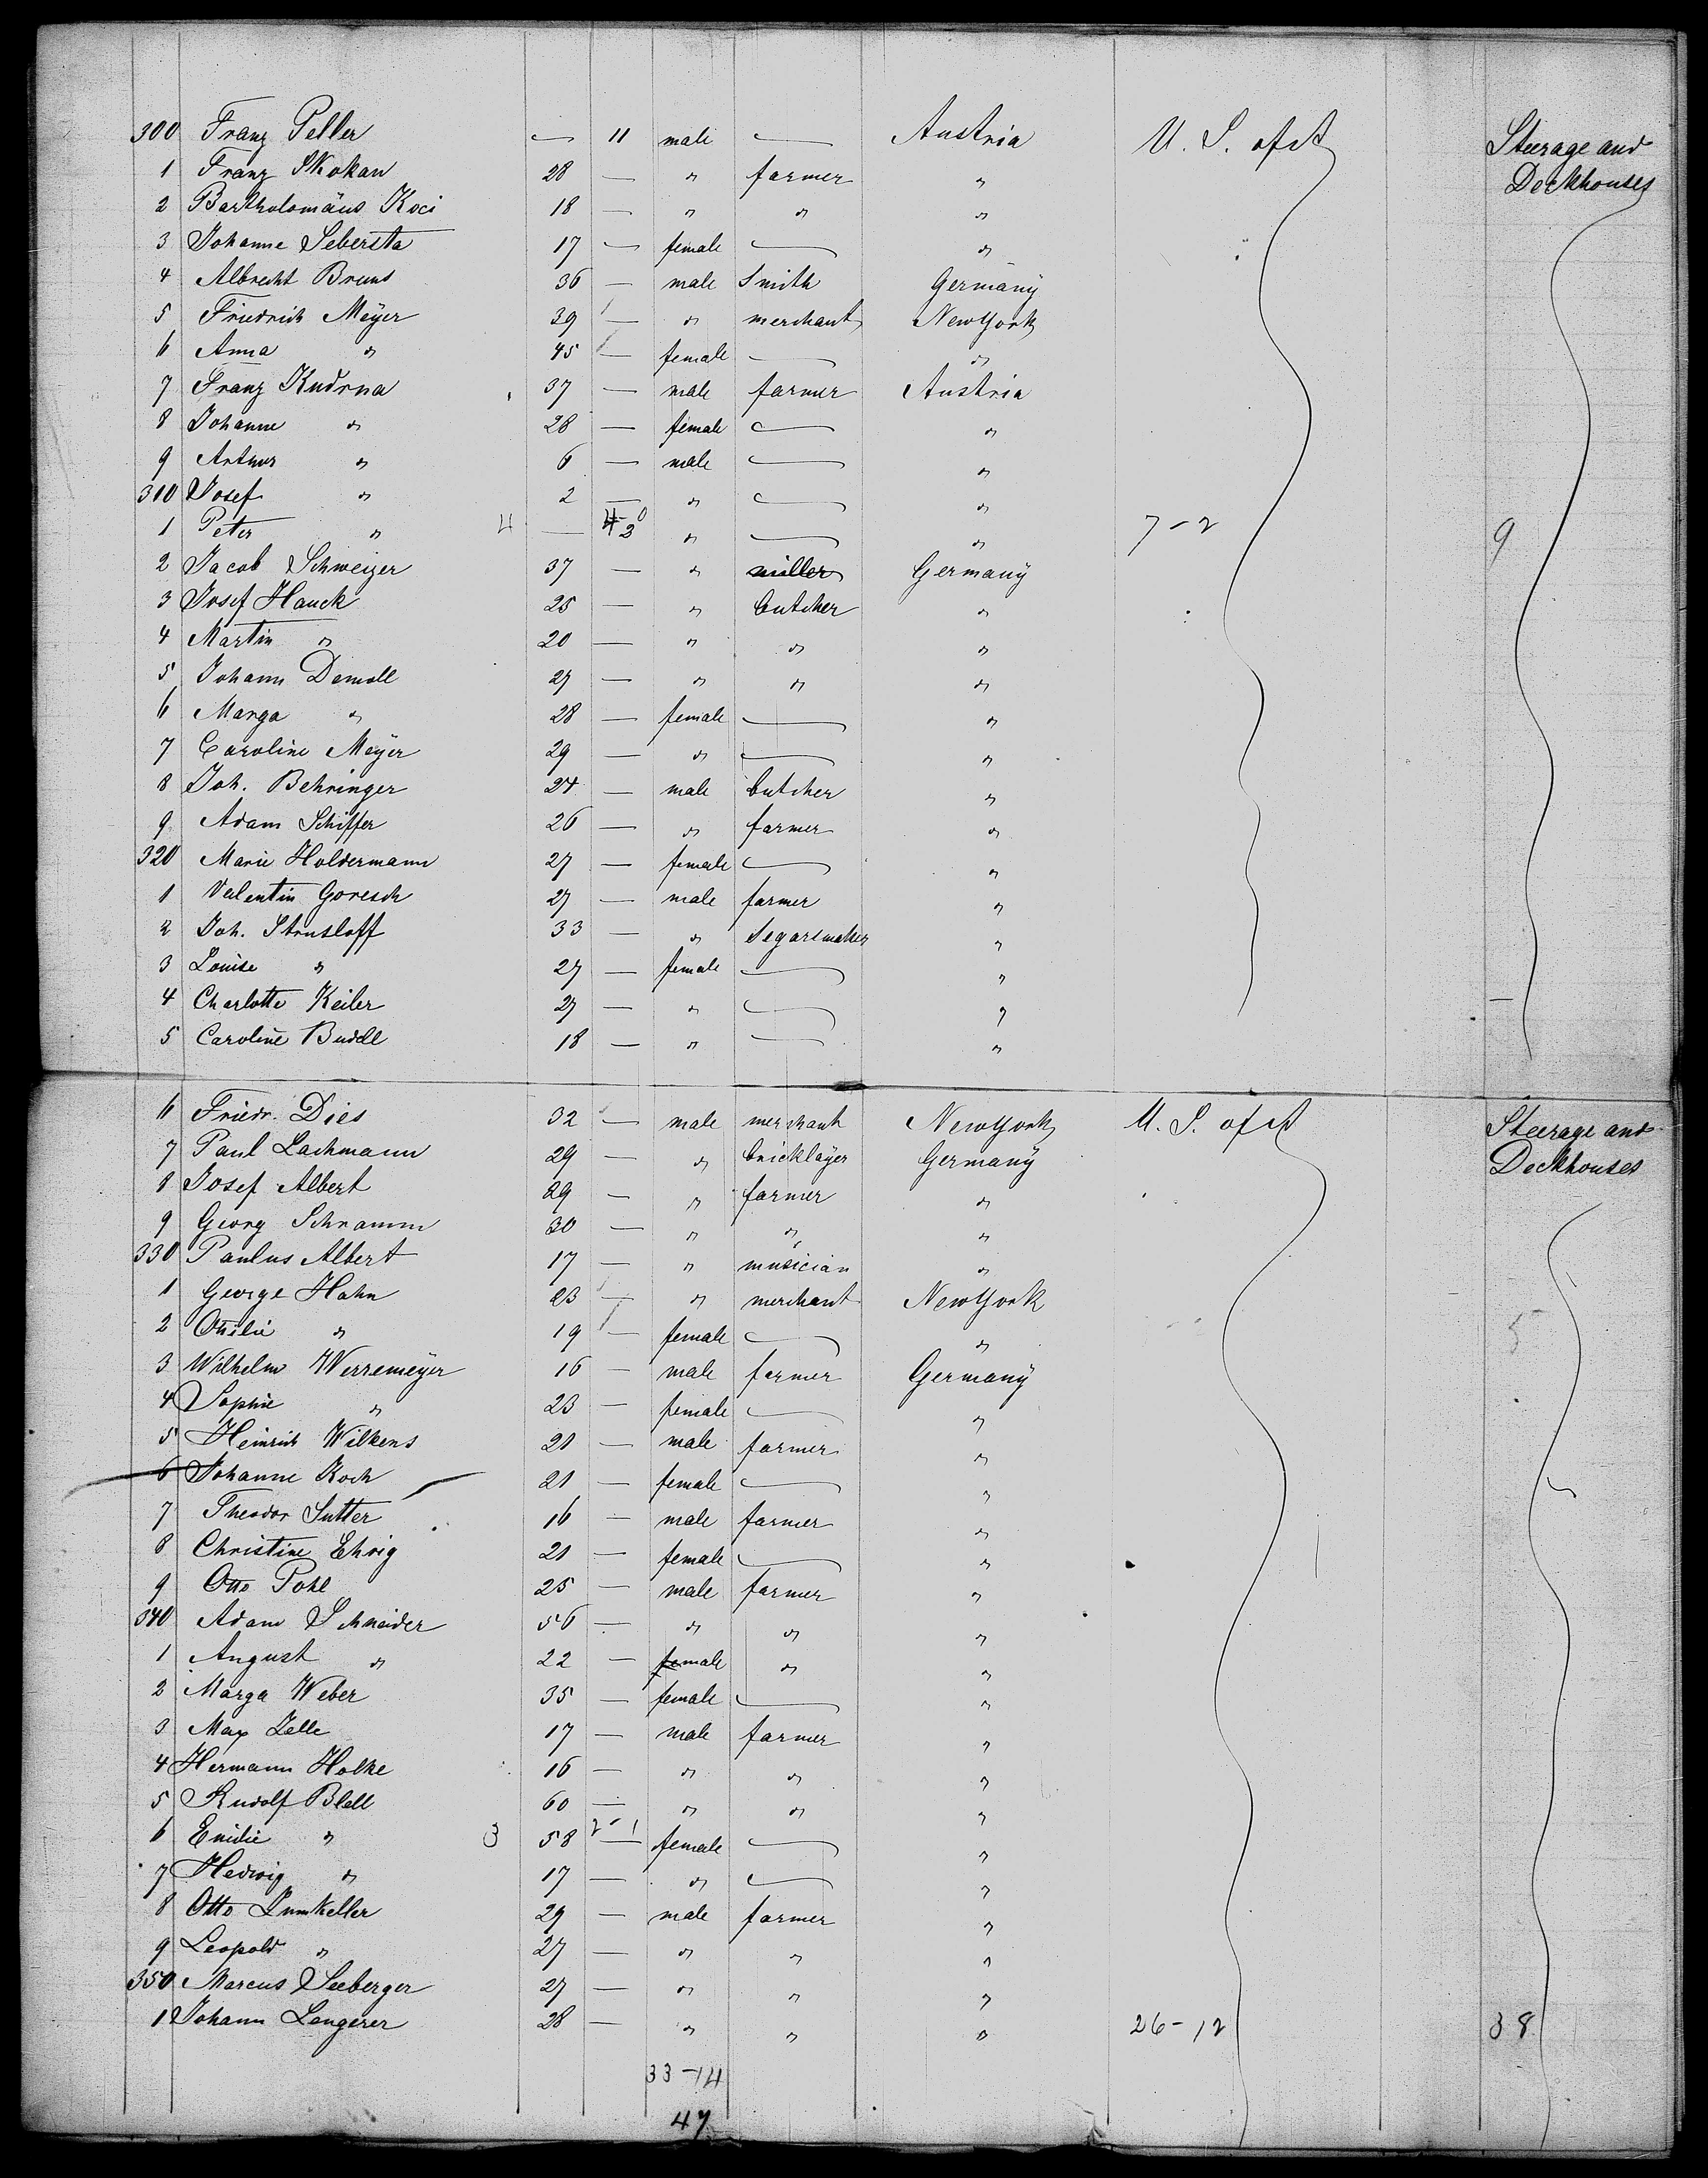 300 Franz Peller — 11 male — Austria U. S. of A Steerage and Deckhouses
1 Franz Skokan 28 — " farmer "
2 Bartholomäus Koci 18 — " " "
3 Johanne Sebersta 17 — female — "
4 Albrecht Bruns 36 — male Smith Germany
5 Friedrich Meyer 39 — " merchant New York
6 Anna " 45 — female — "
7 Franz Kudrna 37 — male farmer Austria
8 Johanne " 28 — female — "
9 Arthur " 6 — male — "
310 Josef " 2 — " — "
1 Peter " 4 — " — " 7-2 9
2 Jacob Schweizer 37 — " miller Germany
3 Josef Hauck 25 — " butcher "
4 Martin " 20 — " " "
5 Johann Demoll 27 — " " "
6 Marga " 28 — female — "
7 Caroline Meyer 29 — " — "
8 Joh. Behringer 24 — male butcher "
9 Adam Schiffer 26 — " farmer "
320 Marie Holdermann 27 — female — "
1 Valentin Goresch 27 — male farmer "
2 Joh. Strusloff 33 — " Segarsmaker "
3 Louise " 27 — female — "
4 Charlotte Keiler 27 — " — "
5 Caroline Buddl 18 — " — "
6 Friedr. Dies 32 — male merchant New York U. S. of A Steerage and Deckhouses
7 Paul Lachmann 29 — " bricklayer Germany
8 Josef Albert 29 — " farmer "
9 Georg Schramm 30 — " " "
330 Paulus Albert 17 — " musician "
1 George Hahn 23 — " merchant New York
2 Ottilie " 19 — female — " 5
3 Wilhelm Werremeyer 16 — male farmer Germany
4 Sophie " 23 — female — "
5 Heinrich Wilkens 21 — male farmer "
6 Johanne Koch 21 — female — "
7 Theodor Sutter 16 — male farmer "
8 Christine Ehrig 21 — female — "
9 Otto Pohl 25 — male farmer "
340 Adam Schneider 56 — " " "
1 August " 22 — female " "
2 Marga Weber 35 — female — "
3 Max Zelle 17 — male farmer "
4 Hermann Holke 16 — " " "
5 Rudolf Blell 60 — " " "
6 Emilie " 3 58 2-1 — female — "
7 Hedwig " 17 — " — "
8 Otto Zumkeller 29 — male farmer "
9 Leopold " 27 — " " "
350 Marcus Seeberger 27 — " " "
1 Johann Lengerer 28 — " " " 26-12 38
33-14
47